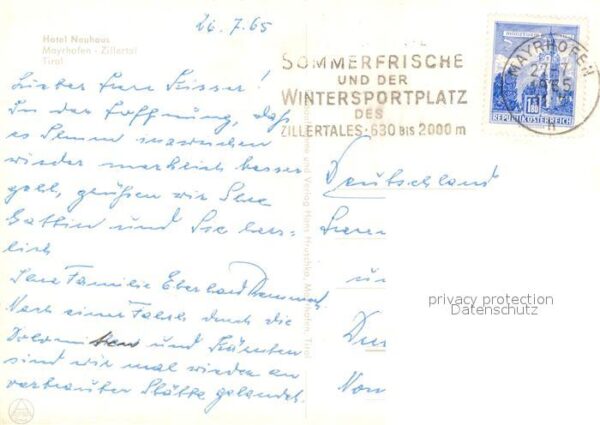 26.7.65
Hotel Neuhaus
Mayrhofen - Zillertal
Tirol
SOMMERFRISCHE
UND DER
WINTERSPORTPLATZ
DES
ZILLERTALES · 630 BIS 2000 m
MAYRHOFEN
27.7
1965
1.80
REPUBLIK ÖSTERREICH
Lieber Herr
In der Hoffnung, daß
es Ihnen inzwischen
wieder merklich besser
geht, grüßen wir Ihre
Gattin und Sie herz-
lich
Ihre Familie Eberhard
Nach einer Fahrt durch die
Dolomiten und Kärnten
sind wir mal wieder an
vertrauter Stätte gelandet.
und Verlag Hans Hruschka, Mayrhofen, Tirol
Deutschland
privacy protection
Datenschutz